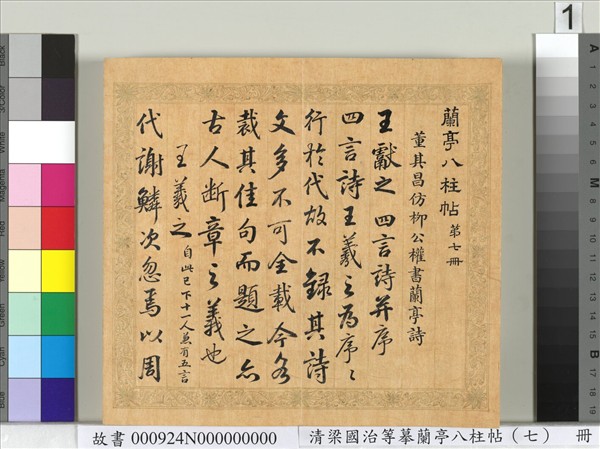 蘭亭八柱帖 第七冊
董其昌仿柳公權書蘭亭詩
王獻之四言詩并序
四言詩王羲之為序序
行於代故不錄其詩
文多不可全載今各
裁其佳句而題之亦
古人斷章之義也
王羲之 自此已下十一人兼有五言
代謝鱗次忽焉以周
1
故書 000924N000000000
清梁國治等摹蘭亭八柱帖(七) 冊
Black
3/Color
White
Magenta
Red
Yellow
Green
Cyan
Blue
A
1
2
3
4
5
6
M
8
9
10
11
12
13
14
15
B
17
18
19